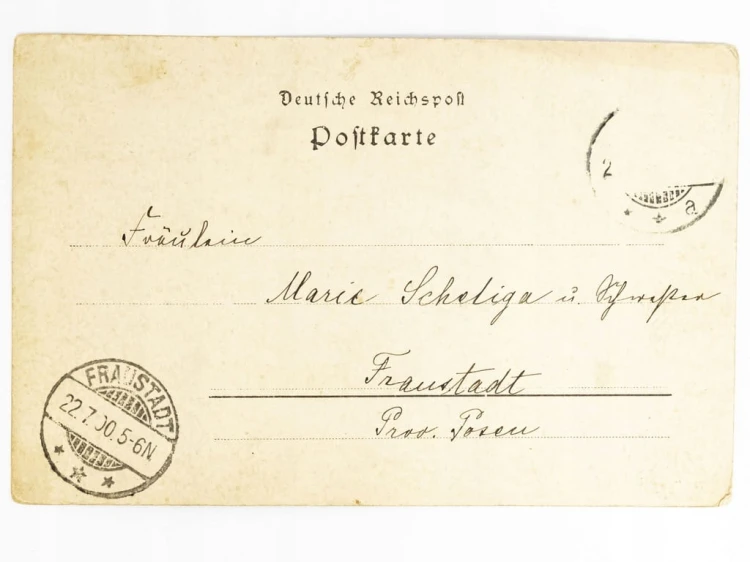 Deutsche Reichspost
Postkarte
2
a
Fräulein
Marie Scheliga u. Schwester
Fraustadt
Prov. Posen
FRAUSTADT
22.7.00.5-6N.